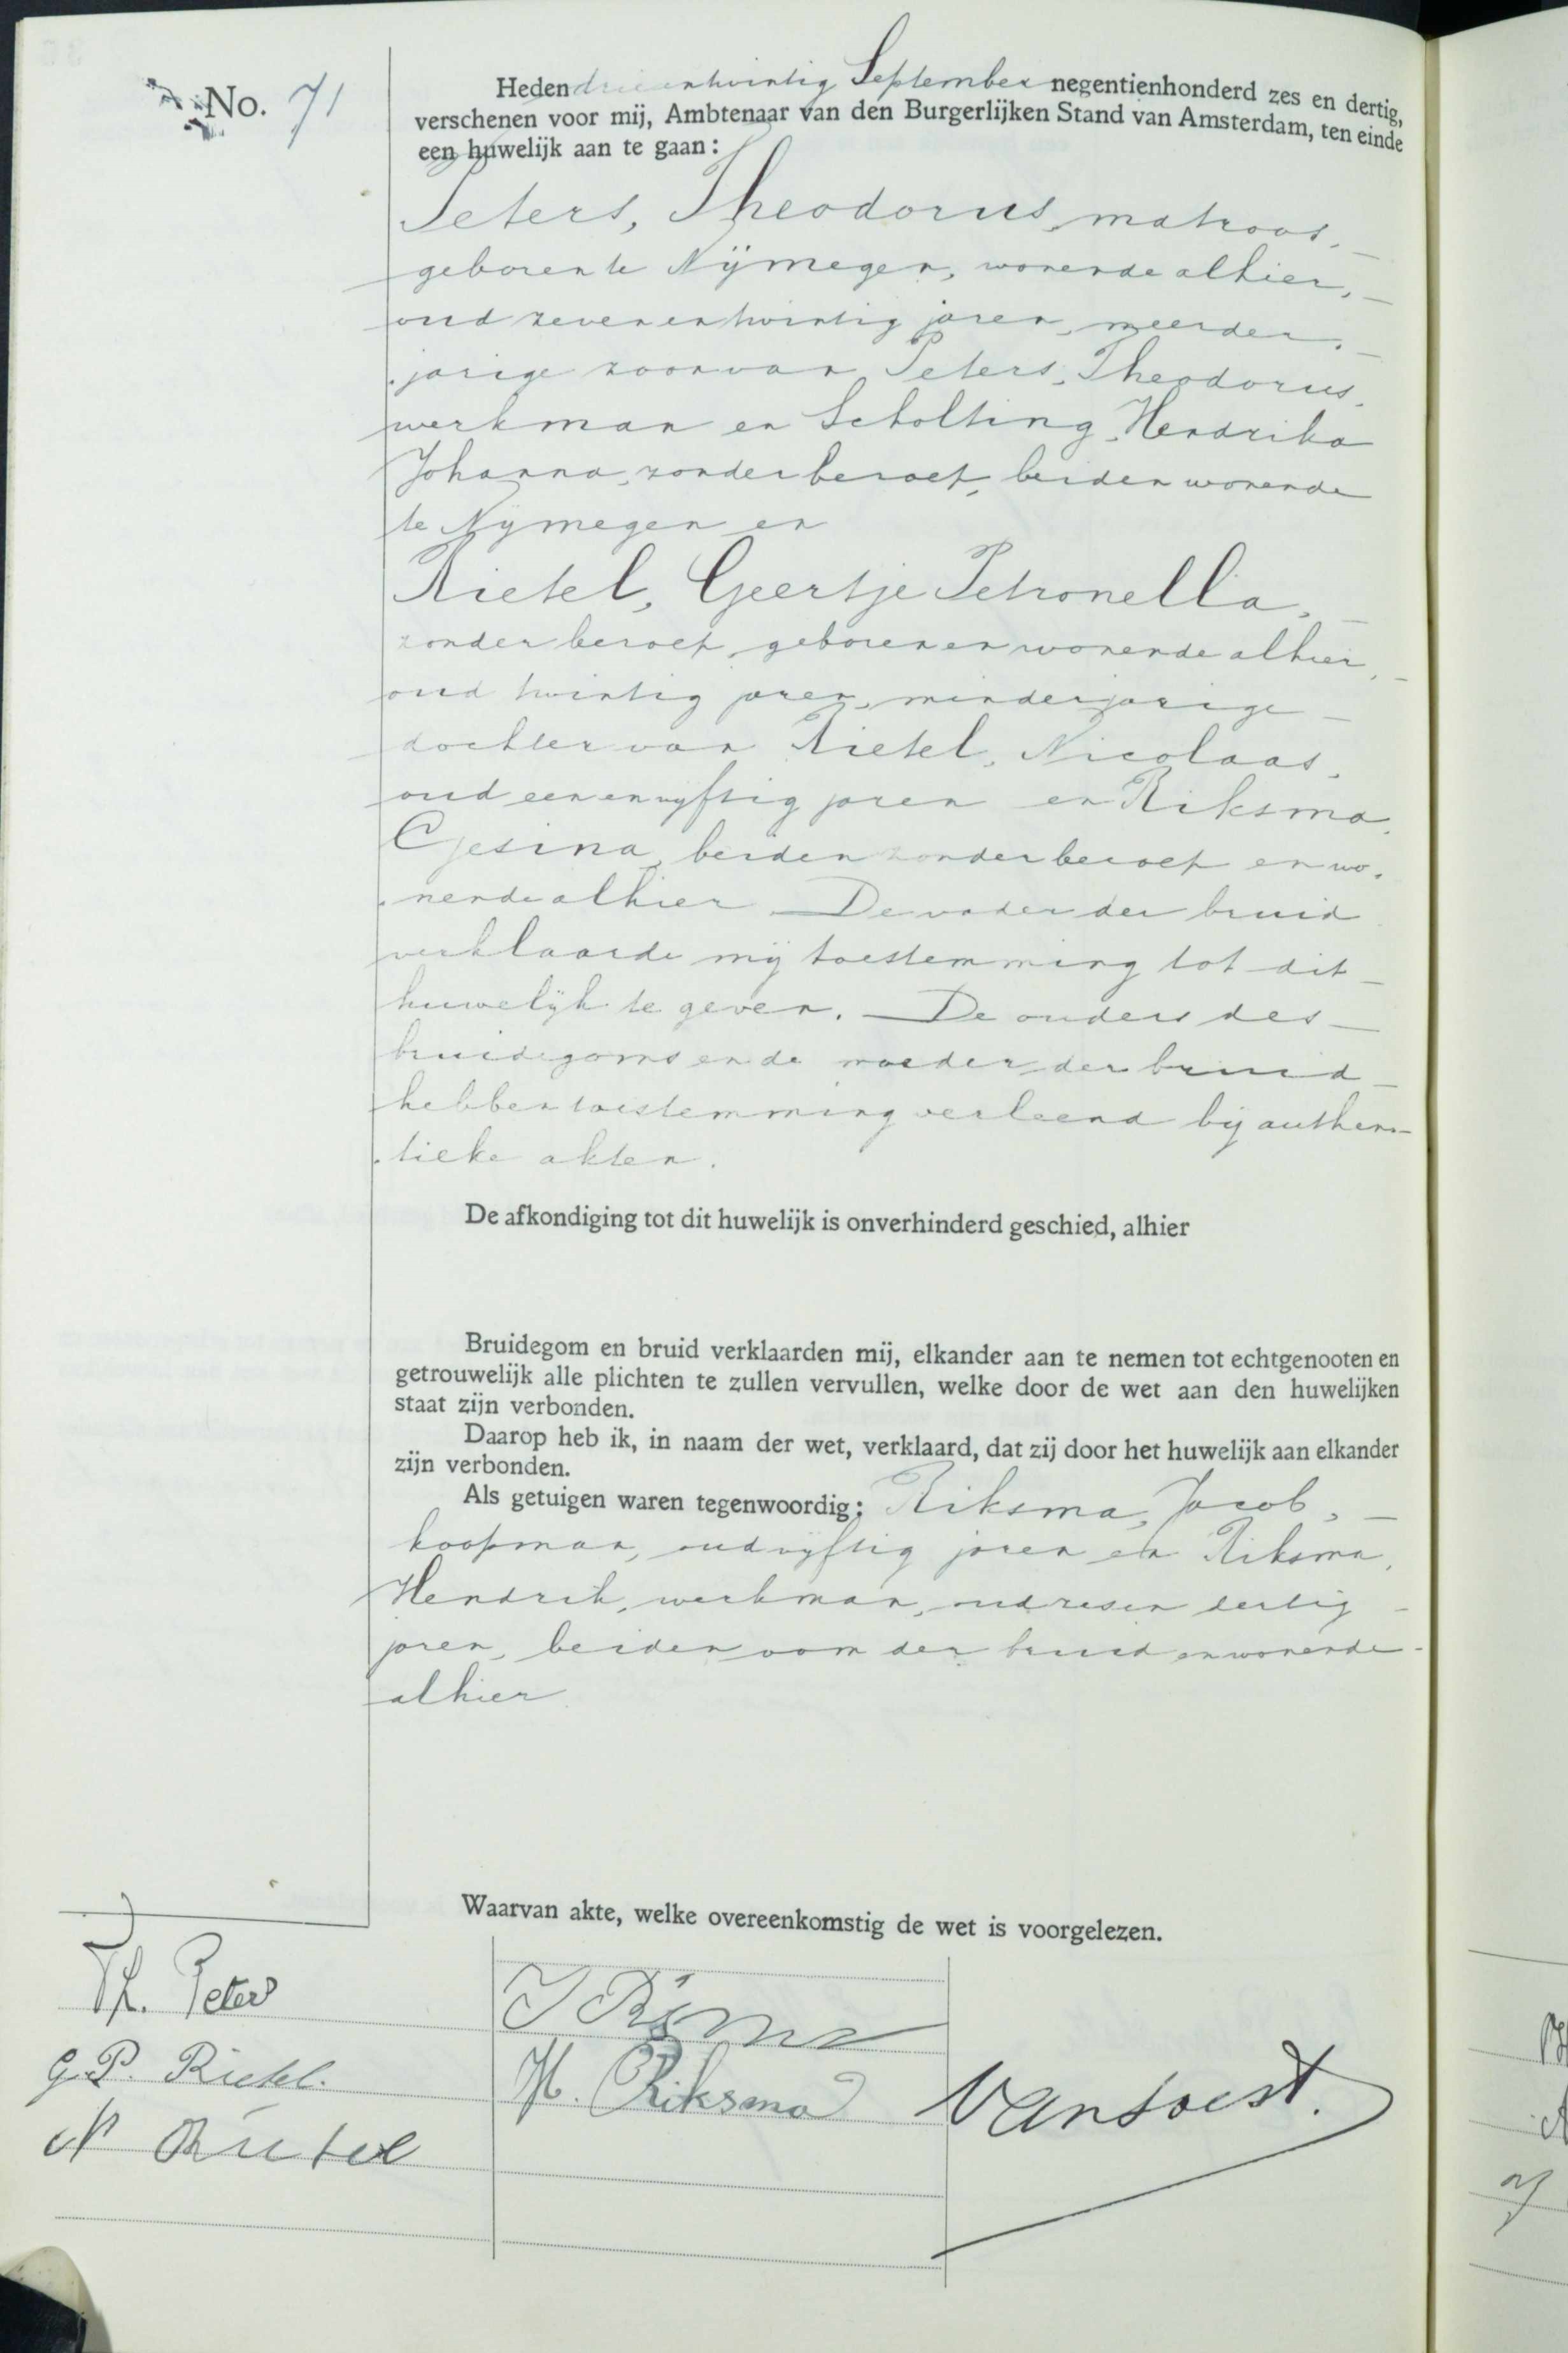 No. 71
Heden drieentwintig September negentienhonderd zes en dertig,
verschenen voor mij, Ambtenaar van den Burgerlijken Stand van Amsterdam, ten einde
een huwelijk aan te gaan:
Peters, Theodorus, matroos,
geboren te Nijmegen, wonende alhier,
oud zevenentwintig jaren, meerder-
jarige zoon van Peters, Theodorus,
werkman en Scholting, Hendrika
Johanna, zonder beroep, beiden wonende
te Nijmegen en
Rietel, Geertje Petronella,
zonder beroep, geboren en wonende alhier,
oud twintig jaren, minderjarige
dochter van Rietel, Nicolaas,
oud eenenvijftig jaren en Riksma,
Gesina, beiden zonder beroep en wo-
nende alhier. De vader der bruid
verklaarde mij toestemming tot dit
huwelijk te geven. De ouders des
bruidegoms en de moeder der bruid
hebben toestemming verleend bij authen-
tieke akten.
De afkondiging tot dit huwelijk is onverhinderd geschied, alhier
Bruidegom en bruid verklaarden mij, elkander aan te nemen tot echtgenooten en
getrouwelijk alle plichten te zullen vervullen, welke door de wet aan den huwelijken
staat zijn verbonden.
Daarop heb ik, in naam der wet, verklaard, dat zij door het huwelijk aan elkander
zijn verbonden.
Als getuigen waren tegenwoordig: Riksma, Jacob,
koopman, oud vijftig jaren en Riksma,
Hendrik, werkman, oud zesen dertig
jaren, beiden oom der bruid en wonende
alhier
Waarvan akte, welke overeenkomstig de wet is voorgelezen.
Th. Peters
G.P. Rietel.
N Rietel
H. Riksma
van Soest.